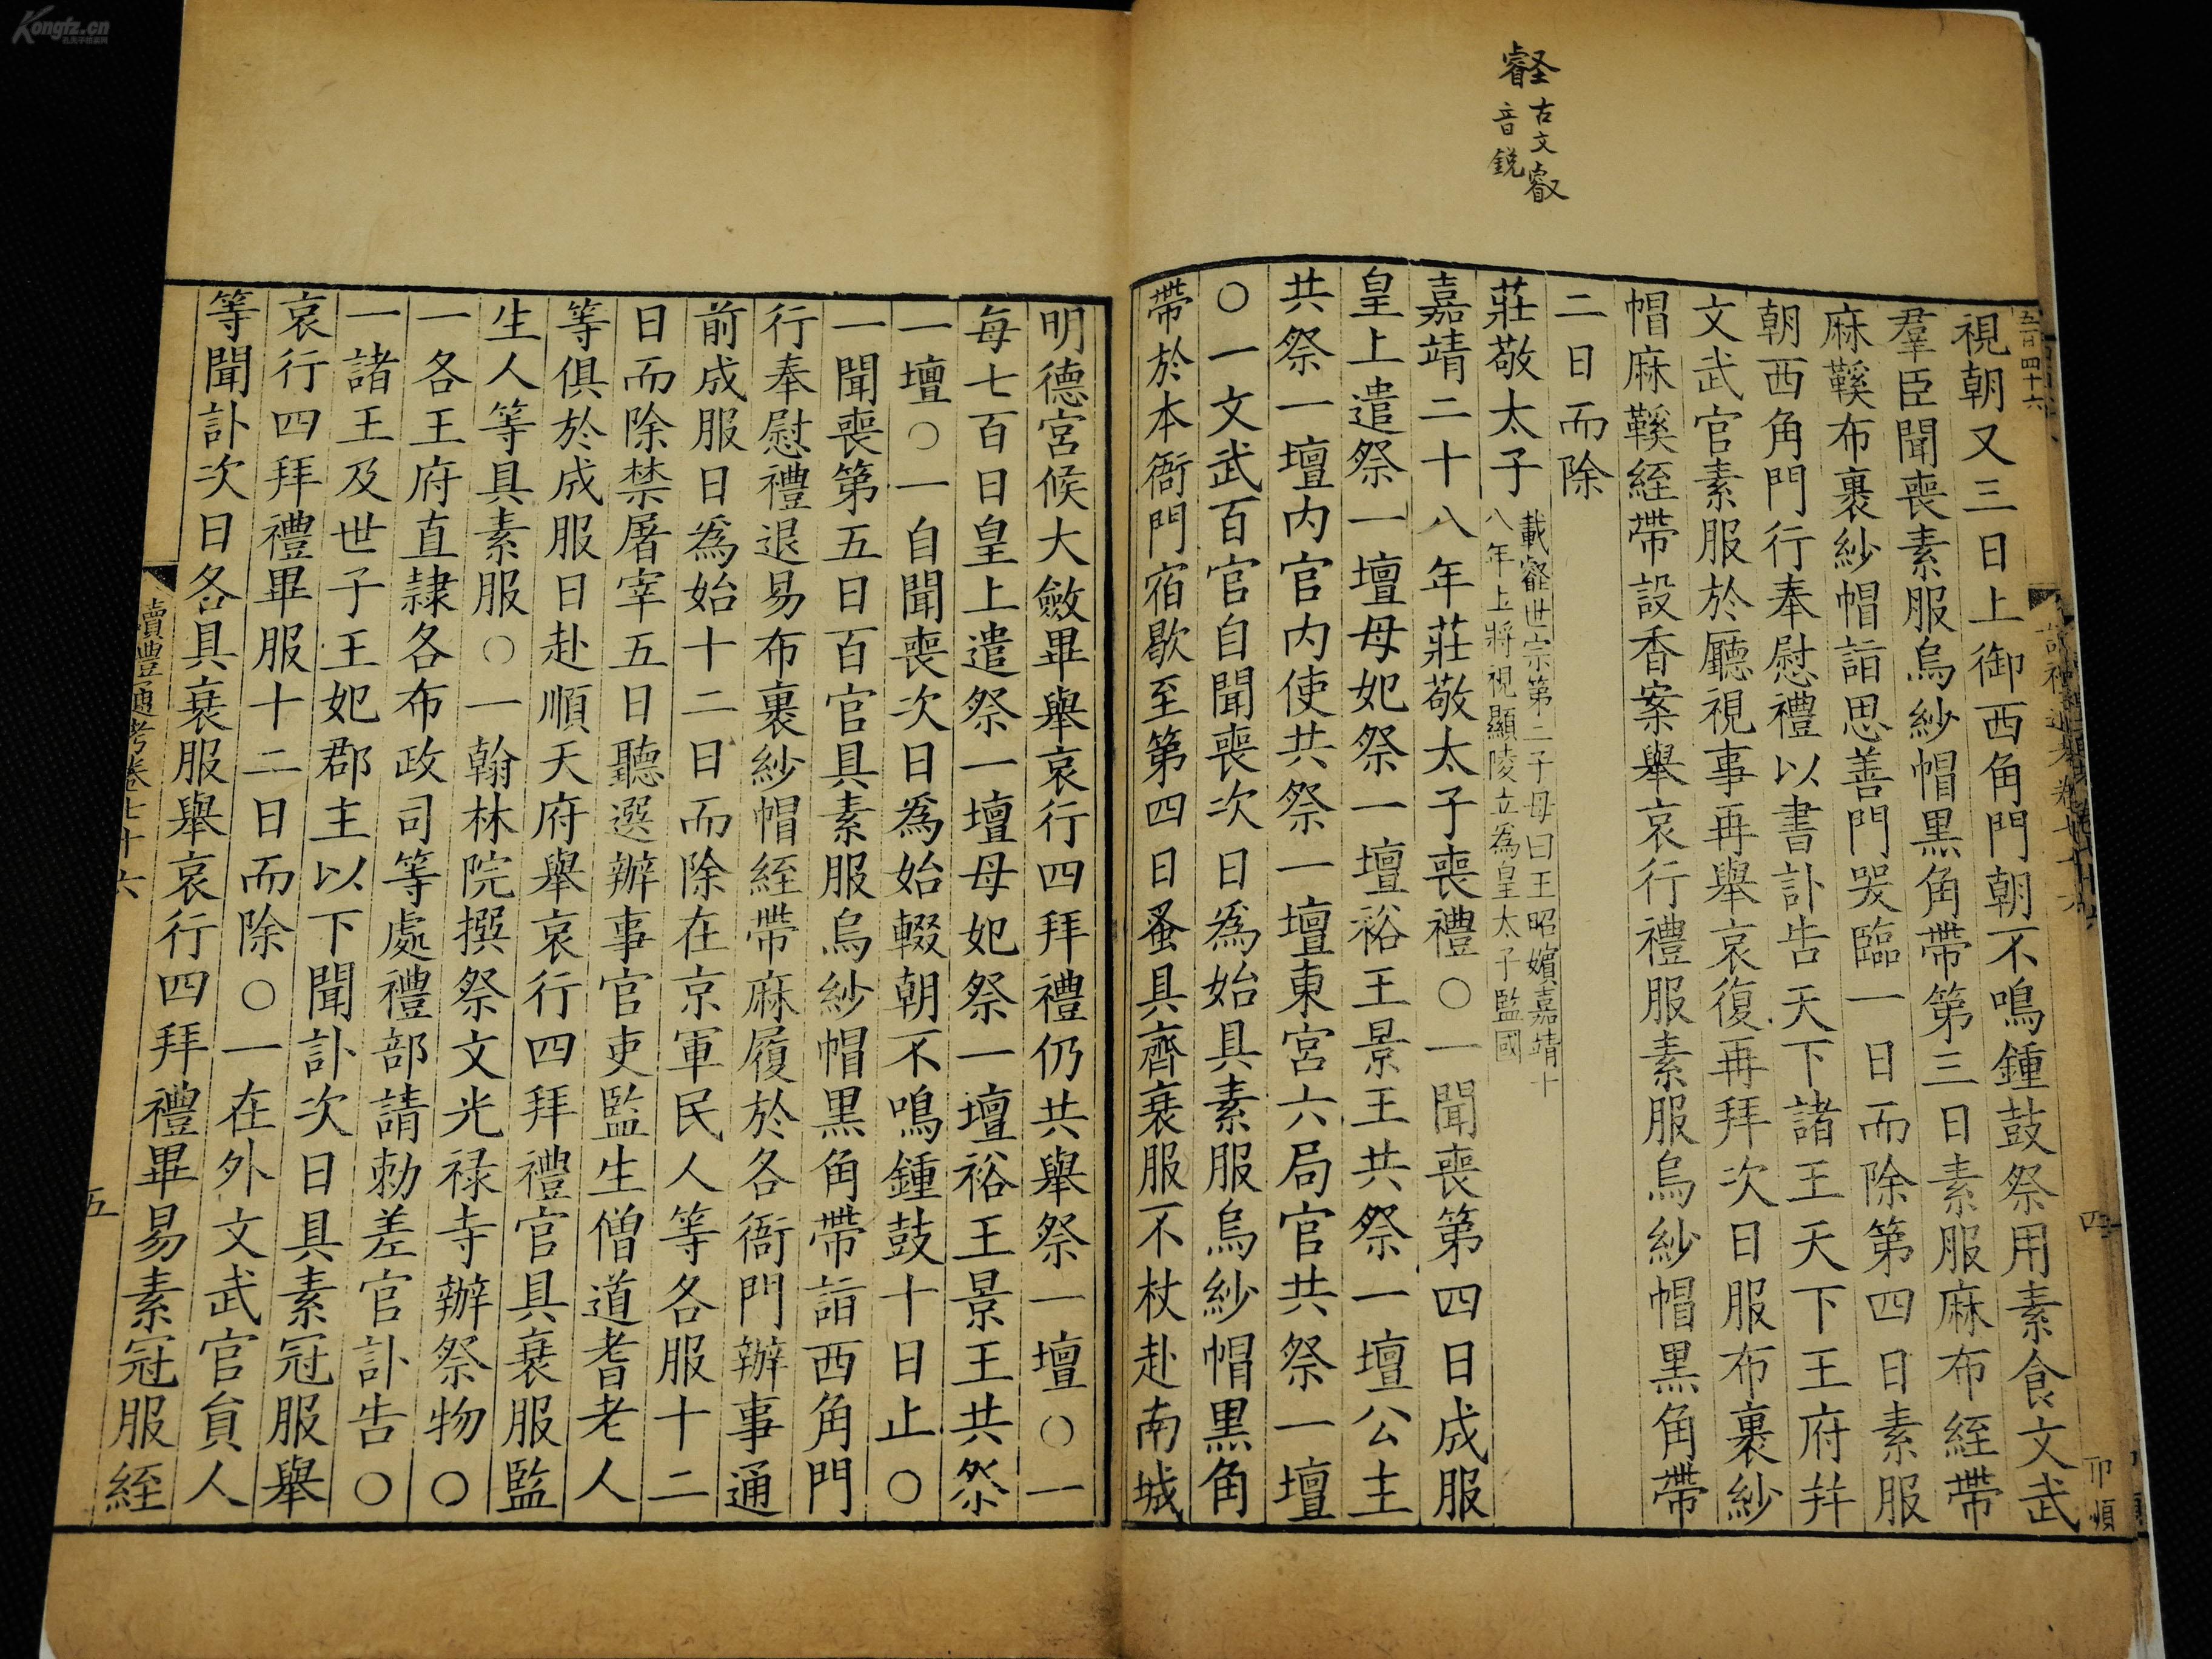 Kongfz.cn
孔夫子旧书网
𡐩古文叡
音銳
五百四十六
四
視朝又三日上御西角門朝不鳴鍾鼓祭用素食文武
羣臣聞喪素服烏紗帽黑角帶第三日素服麻布絰帶
麻鞵布裹紗帽詣思善門哭臨一日而除第四日素服
朝西角門行奉慰禮以書訃告天下諸王天下王府幷
文武官素服於廳視事再舉哀復再拜次日服布裹紗
帽麻鞵絰帶設香案舉哀行禮服素服烏紗帽黑角帶
二日而除
莊敬太子載壡世宗第二子母曰王昭嬪嘉靖十
八年上將視顯陵立為皇太子監國
嘉靖二十八年莊敬太子喪禮○一聞喪第四日成服
皇上遣祭一壇母妃祭一壇裕王景王共祭一壇公主
共祭一壇内官内使共祭一壇東宮六局官共祭一壇
○一文武百官自聞喪次日為始具素服烏紗帽黑角
帶於本衙門宿歇至第四日蚤具齊衰服不杖赴南城
明德宮候大斂畢舉哀行四拜禮仍共舉祭一壇○一
每七百日皇上遣祭一壇母妃祭一壇裕王景王共祭
一壇○一自聞喪次日為始輟朝不鳴鍾鼓十日止○
一聞喪第五日百官具素服烏紗帽黑角帶詣西角門
行奉慰禮退易布裹紗帽絰帶麻履於各衙門辦事通
前成服日為始十二日而除在京軍民人等各服十二
日而除禁屠宰五日聽選辦事官吏監生僧道耆老人
等俱於成服日赴順天府舉哀行四拜禮官具衰服監
生人等具素服○一翰林院撰祭文光禄寺辦祭物○
一各王府直隷各布政司等處禮部請勅差官訃告○
一諸王及世子王妃郡主以下聞訃次日具素冠服舉
哀行四拜禮畢服十二日而除○一在外文武官員人
等聞訃次日各具衰服舉哀行四拜禮畢易素冠服絰
讀禮通考卷七十六
五